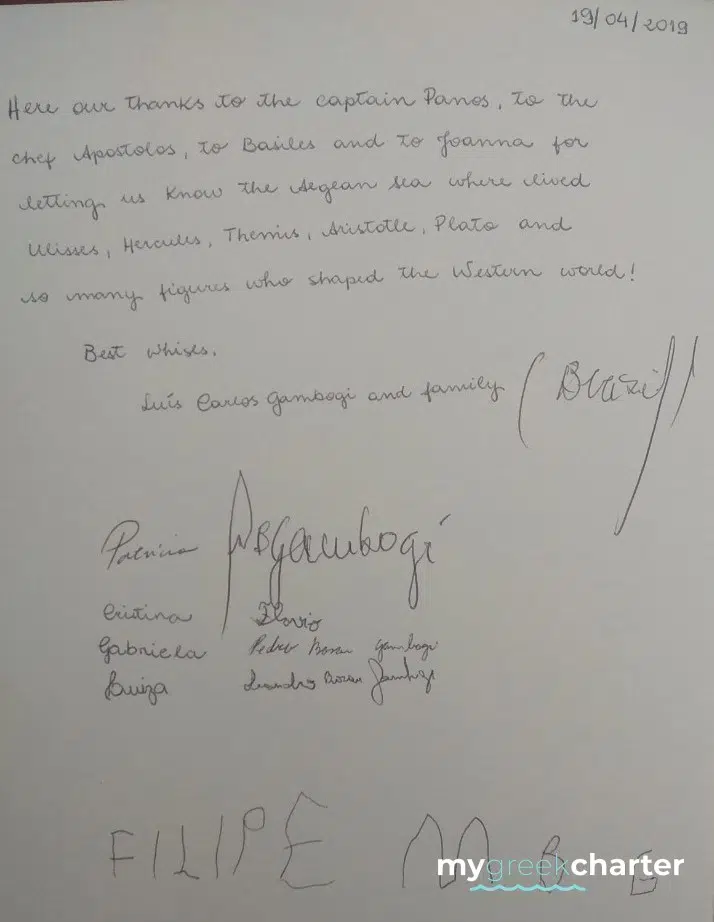 19/04/2019
Here our thanks to the captain Panos, to the
chef Apostolos, to Basiles and to Joanna for
letting us know the Aegean sea where lived
Ulisses, Hercules, Themis, Aristotle, Plato and
so many figures who shaped the Western world!
Best whises.
Luís Carlos Gambogi and family (Brazil)
Patricia Gambogi
Cristina Flavio
Gabriela Pedro Gambogi
Luiza Leandro Gambogi
FILIPE M B G
mygreekcharter